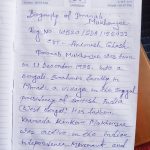 Biography of Pranab
Mukherjee
Reg. No.
Pranab Mukherjee was born
on 11 December 1935, into a
Bengali Brahmin family in
Mirati, a village in the Bengal
Presidency of British India
(West Bengal). His father,
Kamada Kinkar Mukherjee
was active in the Indian
independence movement and